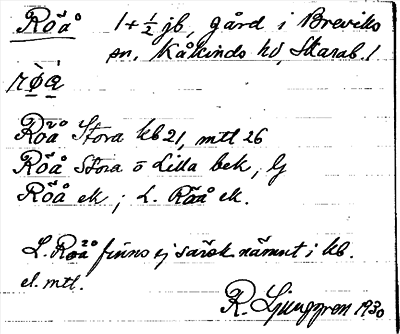 Röå 1+½ jb, gård i Breviks
sn. Kåkinds hd, Skarab. l
røa
Röå Stora kb 21, mtl 26
Röå Stora o Lilla bek, G
Röå ek; L. Röå ek.
L. Röå finns ej särsk nämnt i kb.
el. mtl.
R. Ljunggren 1930